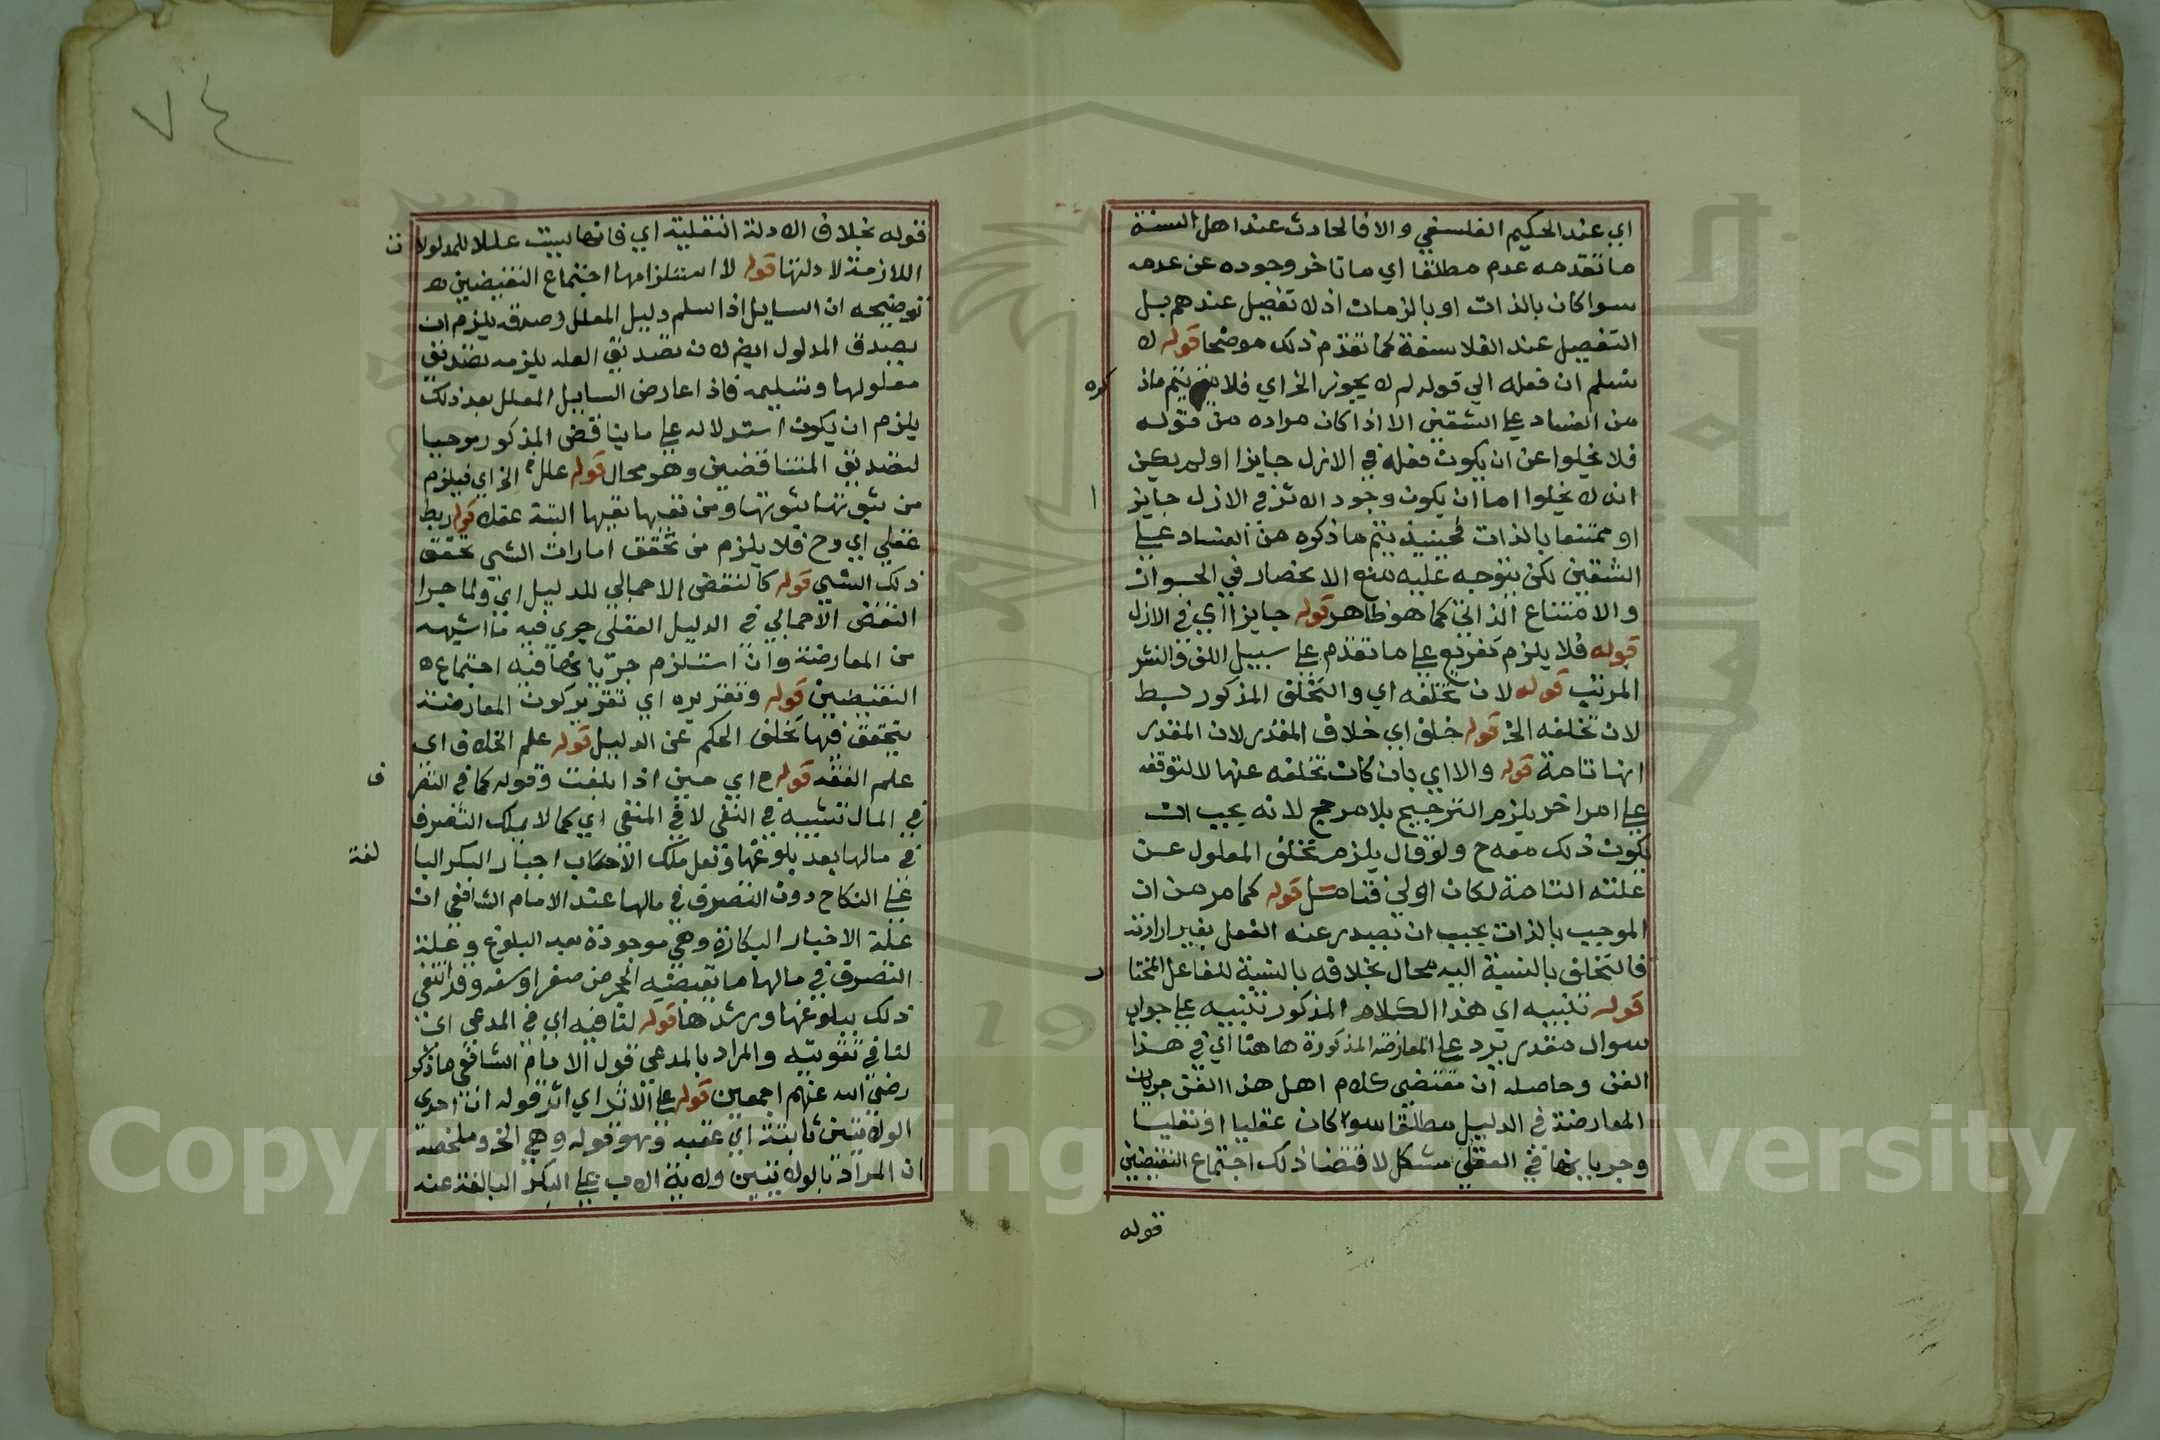 اي عند الحكيم الفلسفي والا فالحادث عند اهل السنة
ما تقدمه عدم مطلقا اي ما تاخر وجوده عن عدمه
سوا كان بالذات او بالزمات اذ لا تفصيل عندهم بل
التفصيل عند الفلاسفة كما تقدم ذلك موضحا قوله لا
نسلم ان فعله الي قوله لم لا يجوز الخ اي فلا يتم ماذ
كوه
من الفساد علي الشقين الا اذا كان مراده من قوله
فلا يخلوا عن ان يكون فعله في الازل جايزا اولم يكن
انه لا يخلوا اما ان يكون وجود الاثر في الازل جايز
ا
او ممتنعا بالذات فحينيذ يتم ما ذكوه من الفساد علي
الشقين لكن يتوجه عليه منع الانحصار في الجواز
والامتناع الذاتي كما هو ظاهر قوله جايزا اي في الازل
قوله فلا يلزم تفريع علي ما تقدم علي سبيل اللف والنشر
المرتب قوله لان تخلفه اي والتخلف المذكور بسط
لان تخلفه الخ قوله خلف اي خلاف المقدر لان المقدر
انها تامة قوله والا اي بان كان تخلفه عنها لا لتوقفه
علي امر اخر يلزم الترجيح بلا مرجح لانه يجب ان
يكون ذلك معه ح ولو قال يلزم تخلف المعلول عن
علته التامة لكان اولي فتامل قوله كما مر من ان
الموجب بالذات يجب ان يصدر عنه الفعل بغير ارادته
فالتخلف بالنسبة اليه محال بخلافه بالنسبة للفاعل المختا
ر
قوله تنبيه اي هذا الكلام المذكور تنبيه علي جواب
سوال مقدر يرد علي المعارضة المذكورة هاهنا اي في هذا
الفن وحاصله ان مقتضي كلام اهل هذا الفن جريان
المعارضة في الدليل مطلقا سوا كان عقليا او نقليا
وجريانها في العقلي مشكل لاقتضا ذلك اجتماع النقيضين
قوله
٧٤
قوله بخلاف الادلة النقلية اي فانها ليست عللا للمدلولا
ت
اللازمة لادلتها قوله لاستلزامها اجتماع النقيضين ه
توضيحه ان السايل اذا سلم دليل المعلل وصدقه يلزم ان
يصدق المدلول ايضا لان تصديق العلة يلزمه تصديق
معلولها وتسليمه فاذا عارض السايل المعلل بعد ذلك
يلزم ان يكون استدلاله علي ما يناقض المذكور موجبا
لتصديق المتناقضين وهو محال قوله علل الخ اي فيلزم
من ثبوتها ثبوتها ومن نفيها نفيها البتة عقلا قوله ربط
عقلي اي وح فلا يلزم من تحقق امارات الشي تحقق
ذلك الشي قوله كالنقض الاجمالي للدليل اي ولما جرا
النقض الاجمالي في الدليل العقلي جري فيه ما اشبهه
من المعارضة وان استلزم جريانها فيه اجتماع ه
النقيضين قوله وتقريره اي تقرير كون المعارضة
يتحقق فيها تخلف الحكم عن الدليل قوله علم الخلاف اي
علم الفقه قوله ح اي حين اذا بلغت وقوله كما في التصر
ف
في المال تشبيه في النفي لا في المنفي اي كما لا يملك التصرف
في مالها بعد بلوغها ونعل ملك الاب اجبار البكر البا
لغة
علي النكاح دون التصرف في مالها عند الامام الشافعي ان
علة الاجبار البكارة وهي موجودة بعد البلوغ وعلة
التصرف في مالها ما يقتضيه الحجر من صغر او سفه وقد انتفي
ذلك ببلوغها ورشدها قوله لنا فيه اي في المدعي اي
لنا في تقويته والمراد بالمدعي قول الامام الشافعي ماذكر
رضي الله عنهم اجمعين قوله علي الاثر اي اثر قوله ان احدي
الولايتين ثابتة اي عقبه وهو قوله وهي الخ وملخصه
ان المراد بالولايتين ولاية الاب علي البكر البالغة عند